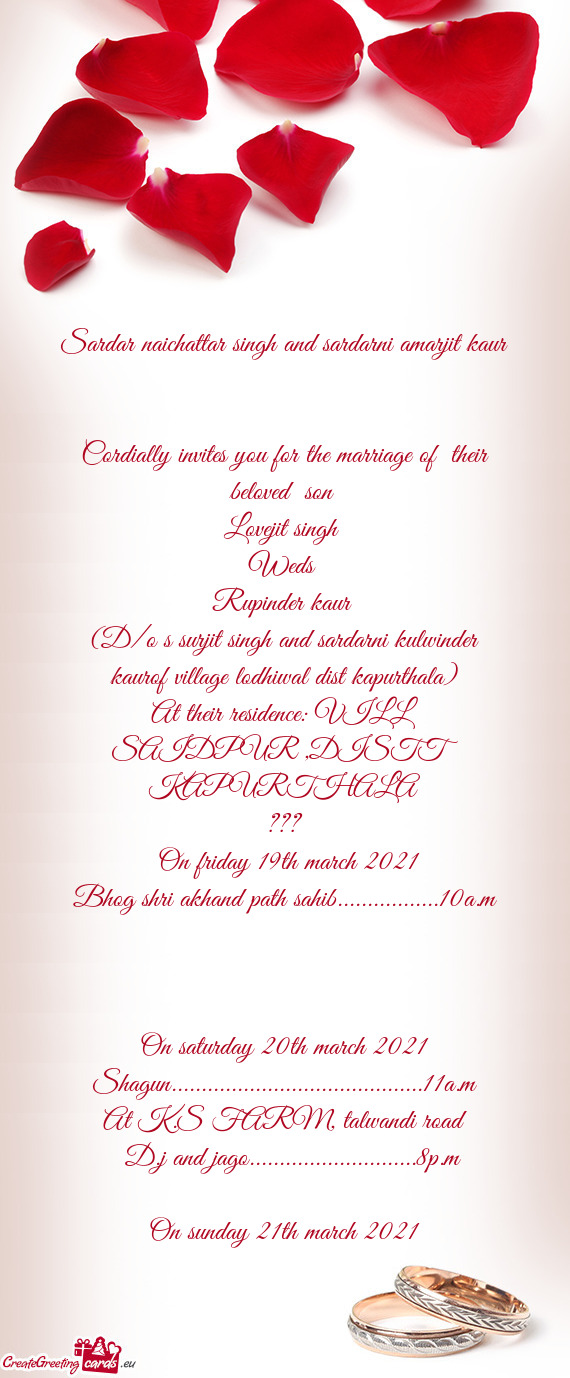 Sardar naichattar singh and sardarni amarjit kaur
Cordially invites you for the marriage of their
beloved son
Lovejit singh
Weds
Rupinder kaur
(D/o s surjit singh and sardarni kulwinder
kaurof village lodhiwal dist kapurthala)
At their residence: VILL
SAIDPUR ,DISTT
KAPURTHALA
???
On friday 19th march 2021
Bhog shri akhand path sahib.................10a.m
On saturday 20th march 2021
Shagun..........................................11a.m
At K.S FARM, talwandi road
D.j and jago............................8p.m
On sunday 21th march 2021
CreateGreeting cards .eu